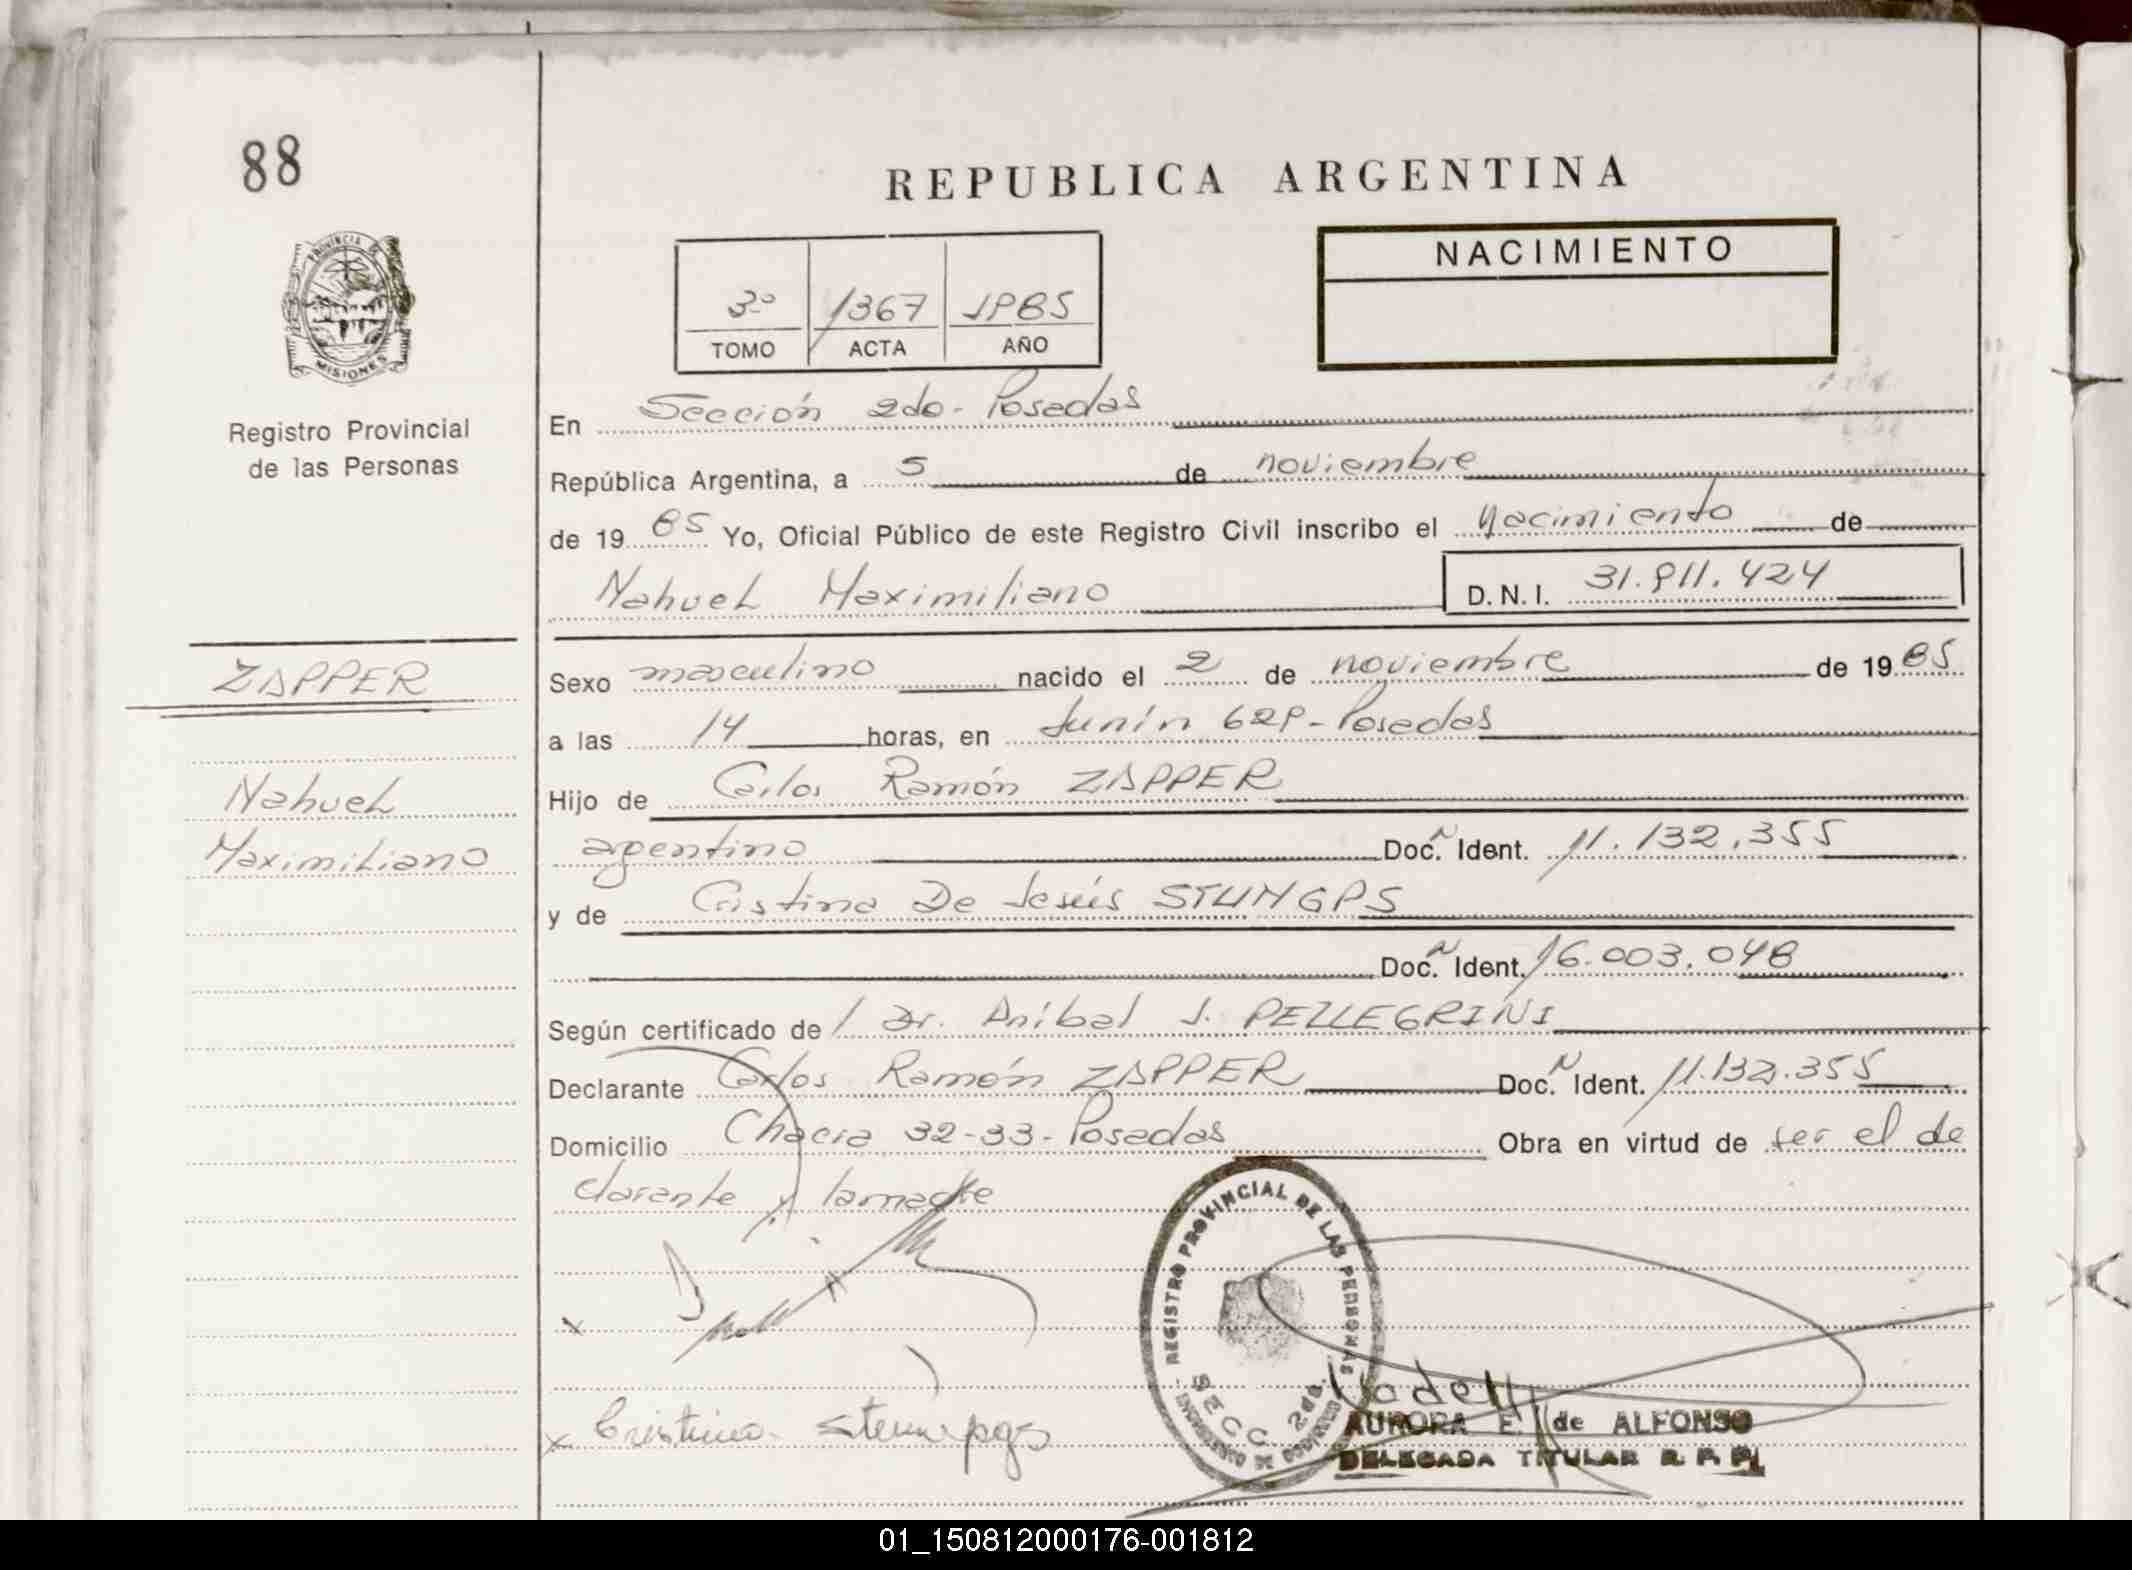 88
REPUBLICA ARGENTINA
PROVINCIA DE
MISIONES
Registro Provincial
de las Personas
3º 1367 1985
TOMO ACTA AÑO
NACIMIENTO
En Sección 2da - Posadas
República Argentina, a 5 de noviembre
de 19 85 Yo, Oficial Público de este Registro Civil inscribo el Nacimiento de
Nahuel Maximiliano D.N.I. 31.911.424
ZAPPER
Nahuel
Maximiliano
Sexo masculino nacido el 2 de noviembre de 19 85
a las 14 horas, en Junín 629 - Posadas
Hijo de Carlos Ramón ZAPPER
argentino Doc. Ident. 11.132.355
y de Cristina De Jesús
Doc. Ident. 16.003.048
Según certificado de / Dr. Aníbal J. PELLEGRINI
Declarante Carlos Ramón ZAPPER Doc. Ident. 11.132.355
Domicilio Chacra 32-33 - Posadas Obra en virtud de ser el de
clarante y la madre
x
x Cristina
REGISTRO PROVINCIAL DE LAS PERSONAS
SECC. 2da.
AURORA E. de ALFONSO
DELEGADA TITULAR R. P. P.
01_150812000176-001812